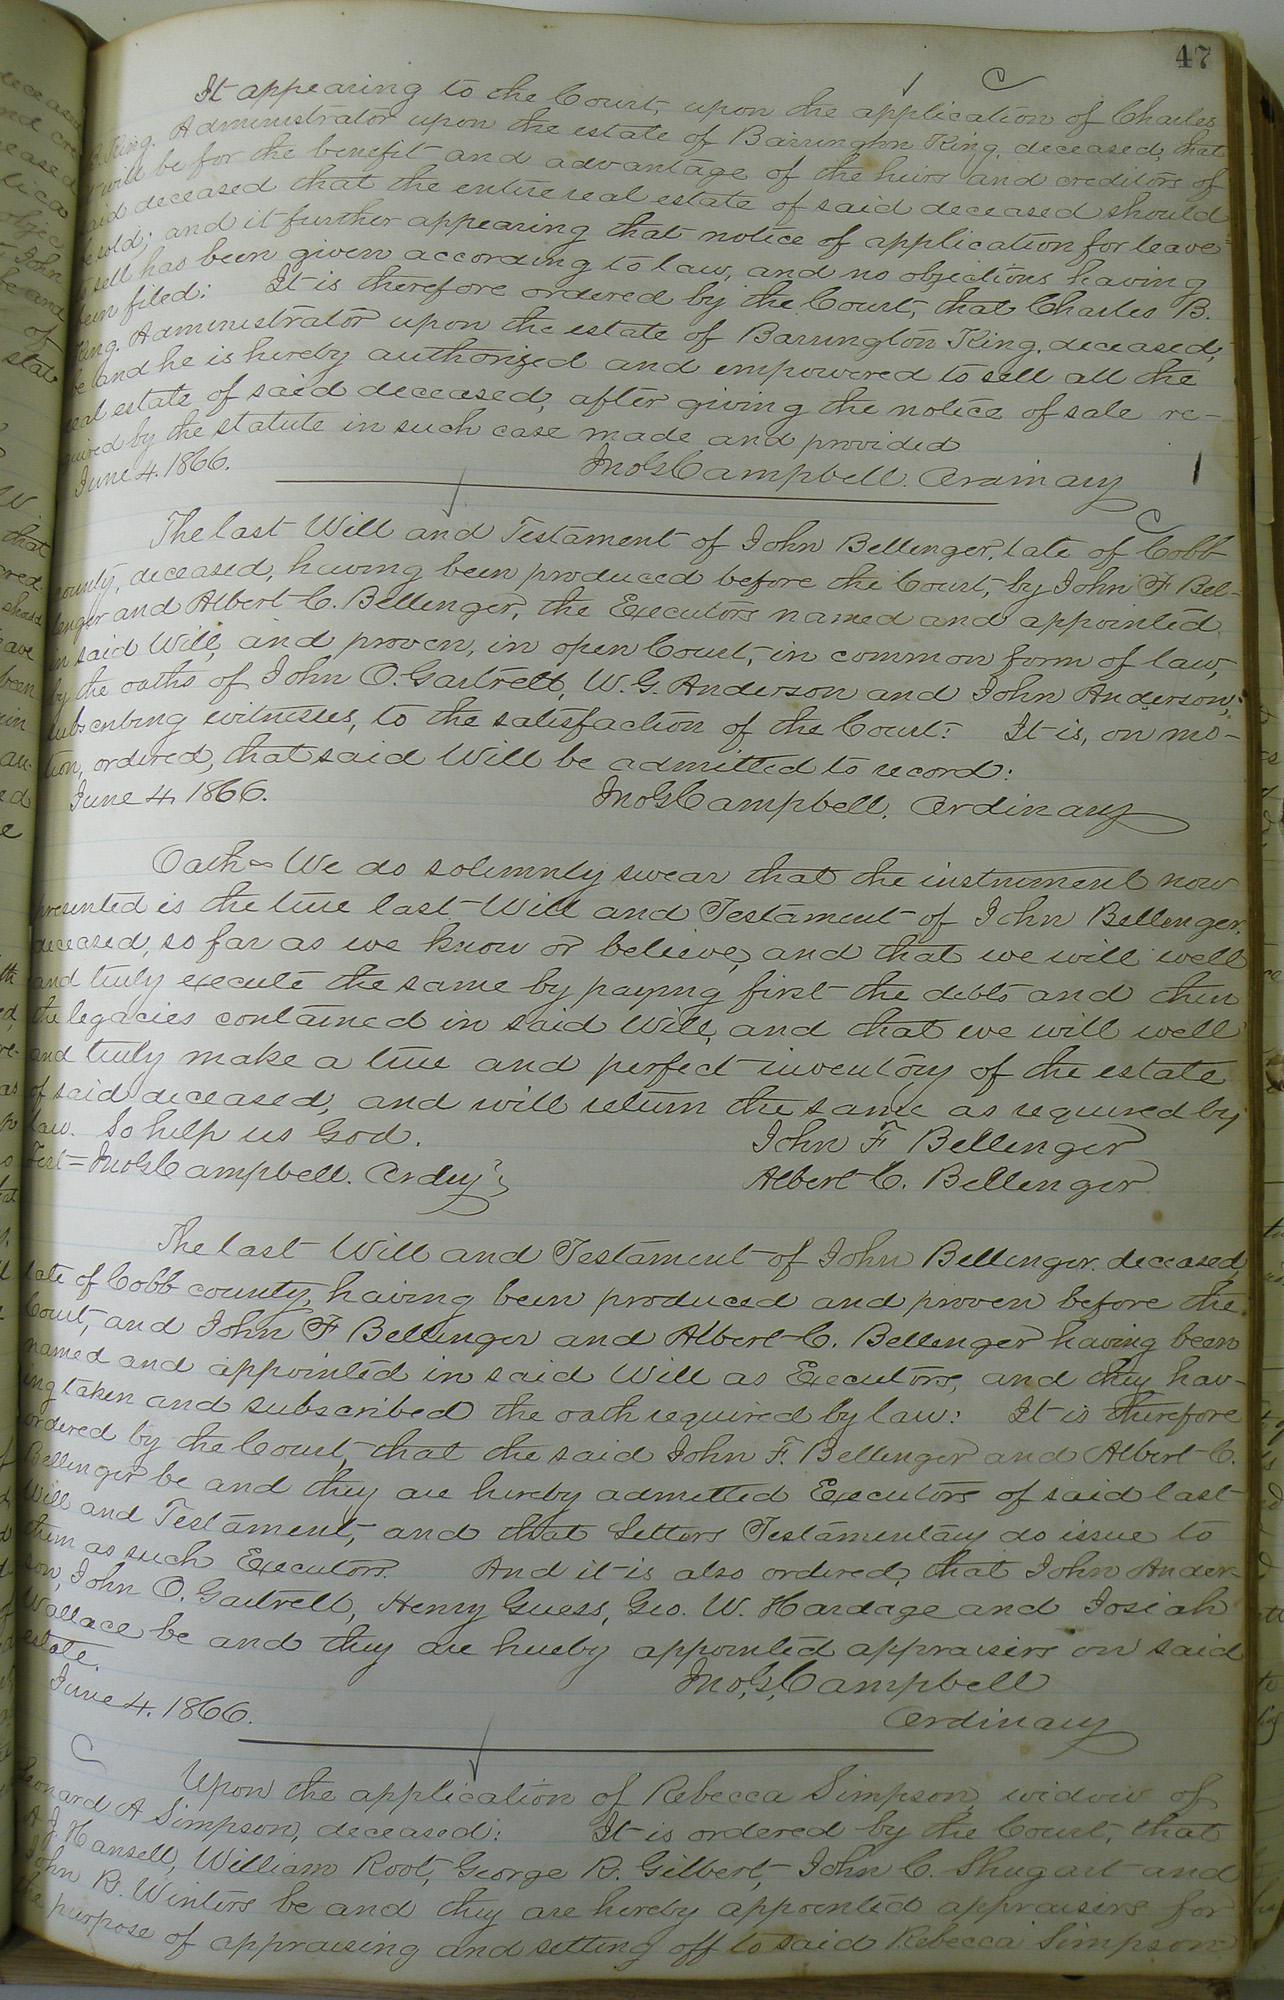 47
It appearing to the Court, upon the application of Charles
B. King, Administrator upon the estate of Barrington King, deceased, that
it will be for the benefit and advantage of the heirs and creditors of
said deceased that the entire real estate of said deceased should
be sold; and it further appearing that notice of application for leave
to sell has been given according to law, and no objections having
been filed: It is therefore ordered by the Court, that Charles B.
King, Administrator upon the estate of Barrington King, deceased,
be and he is hereby authorized and empowered to sell all the
real estate of said deceased, after giving the notice of sale re-
quired by the statute in such case made and provided
June 4. 1866. Jno G Campbell. Ordinary
The last Will and Testament of John Bellenger, late of Cobb
county, deceased, having been produced before the Court, by John F Bel-
lenger and Albert C. Bellenger, the Executors named and appointed
in said Will, and proven, in open Court, in common form of law,
by the oaths of John O. Gartrell, W. G. Anderson and John Anderson,
subscribing witnesses, to the satisfaction of the Court: It is, on mo-
tion, ordered, that said Will be admitted to record:
June 4 1866. Jno G Campbell, Ordinary
Oath - We do solemnly swear that the instrument now
presented is the true last Will and Testament of John Bellenger,
deceased, so far as we know or believe, and that we will well
and truly execute the same by paying first the debts and then
the legacies contained in said Will, and that we will well
and truly make a true and perfect inventory of the estate
of said deceased, and will return the same as required by
law. So help us God. John F Bellenger
Test = Jno G Campbell. Ordny Albert C. Bellenger
The last Will and Testament of John Bellenger deceased,
late of Cobb county, having been produced and proven before the
Court, and John F Bellenger and Albert C. Bellenger having been
named and appointed in said Will as Executors, and they hav-
ing taken and subscribed the oath required by law: It is therefore
ordered by the Court, that the said John F. Bellenger and Albert C.
Bellenger be and they are hereby admitted Executors of said last
Will and Testament, and that Letters Testamentary do issue to
them as such Executors. And it is also ordered, that John Ander-
son, John O. Gartrell, Henry Guess, Geo. W. Hardage and Josiah
Wallace be and they are hereby appointed appraisers on said
estate.
June 4. 1866. Jno, G, Campbell
Ordinary
Upon the application of Rebecca Simpson, widow of
Leonard A Simpson, deceased: It is ordered by the Court, that
A J Hansell, William Root, George R. Gilbert, John C. Shugart and
John R. Winters be and they are hereby appointed appraisers for
the purpose of appraising and setting off to said Rebecca Simpson